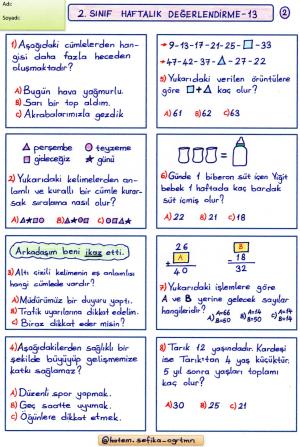 Adı:
Soyadı:
2. SINIF HAFTALIK DEĞERLENDİRME-13
2
1) Aşağıdaki cümlelerden han-
gisi daha fazla heceden
oluşmaktadır?
A) Bugün hava yağmurlu.
B) Sarı bir top aldım.
C) Akrabalarımızla gezdik
perşembe teyzeme
gideceğiz günü
2) Yukarıdaki kelimelerden an-
lamlı ve kurallı bir cümle kurar-
sak sıralama nasıl olur?
A) B) C)
Arkadaşım beni ikaz etti.
3) Altı çizili kelimenin eş anlamlısı
hangi cümlede vardır?
A) Müdürümüz bir duyuru yaptı.
B) Trafik uyarılarına dikkat edelim.
C) Biraz dikkat eder misin?
4) Aşağıdakilerden sağlıklı bir
şekilde büyüyüp gelişmemize
katkı sağlamaz?
A) Düzenli spor yapmak.
B) Geç saatte uyumak.
C) Öğünlere dikkat etmek.
9-13-17-21-25- -33
47-42-37- -27-22
5) Yukarıdaki verilen örüntülere
göre + kaç olur?
A) 61 B) 62 C) 63
6) Günde 1 biberon süt içen Yiğit
bebek 1 haftada kaç bardak
süt içmiş olur?
A) 22 B) 21 C) 18
26 B
± A - 18
40 32
7) Yukarıdaki işlemlere göre
A ve B yerine gelecek sayılar
hangileridir?
A) A=66 B=50 B) A=14 B=50 C) A=14 B=14
8) Tarık 12 yaşındadır. Kardeşi
ise Tarık'tan 4 yaş küçüktür.
5 yıl sonra yaşları toplamı
kaç olur?
A) 30 B) 25 C) 21
@hatem.sefika_ogrtmn